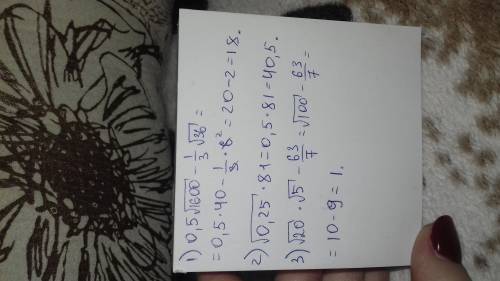 1) 0,5√1600 - 1/3 √36 =
= 0,5·40 - 1/3 · 6² = 20-2=18.
2) √0,25 · 81 = 0,5·81=40,5.
3) √20 · √5 - 63/7 = √100 - 63/7 =
= 10-9=1.